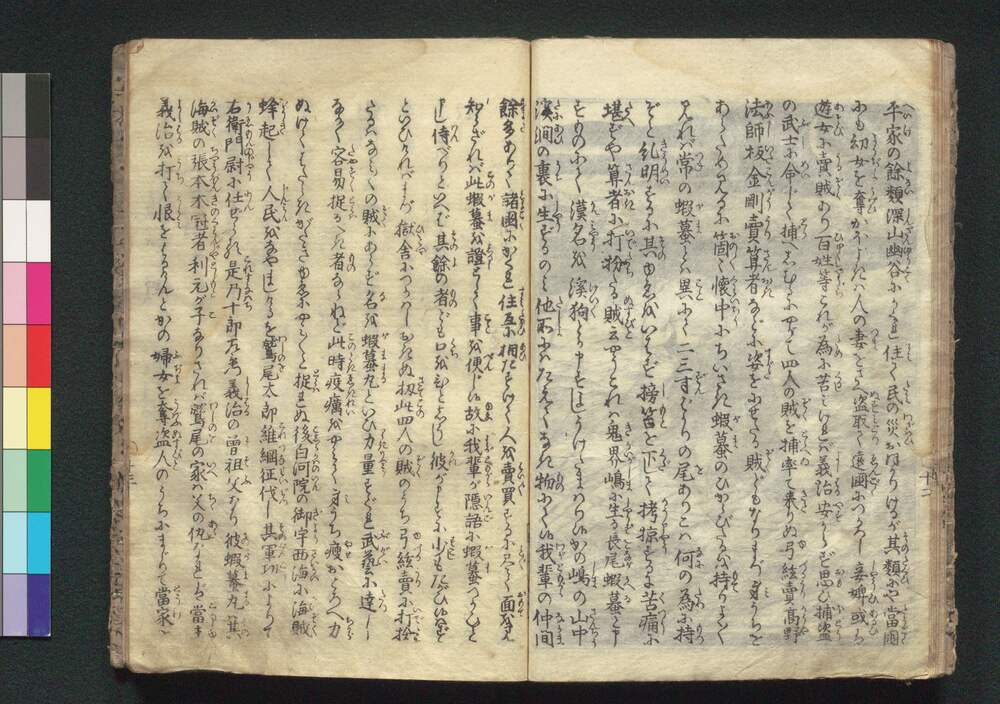 平家の餘類深山幽谷にかくれ住て民の災をなりけるが其類にや當国
にも幼女を奪かうは人の妻をさへ盗取て遠国につかはし妾婢或は
遊女に賣賊あり百姓等これが為に苦しければ義治安からず思ひ捕盗
の武士に命じて捕へしむるにやがて四人の賊を捕率て来りぬ弓絃賣高野
法師板金剛賣算者などに姿をにせたる賊どもなりまづ身うちを
あらためみるに箇〻懐中にちいさき蝦蟇のひからびたるを持りよく
見れば常の蝦蟇とは異にて二三寸ばかりの尾ありこは何の為に持
ぞと糺明するに其ゆゑをいはず搒笞を下して拷掠するに苦痛に
堪ずや算者に打扮たる賊云やうこれは鬼界嶋に生る長尾蝦蟇と申
ものにて漢名を溪狗とも申ようけたまはりいかの嶋の山中
溪澗の裏に生ずるのミ他所にはたえてなき物にて我輩の仲間
餘多ありて諸国にかくれ住互に相たすけて人を賣買するにたがひに面を見
知らざれば此蝦蟇を證として事を便じ故に我輩が隠語に蝦蟇つかひと
申侍べりと云て其餘の者どもの口をむしりしが彼がもとすに少もたがひなし
といひければまづ獄舎につかはしおきぬ扨此四人の賊のうち弓絃賣に打扮
たるはなみ〱の賊にあらず名を蝦蟇丸といひ力量すぐれ武藝に達し
なか〱容易捉べき者ならねど此時疫癘をやみて身うち痩おとろへ力
ぬけてはたらきがたきゆゑにやう〱捉はれぬ後白河院の御宇西海に海賊
蜂起して人民をなやましけるを鷲尾太郎維綱征伐し其軍功によりて
右衛門尉に任ぜられ是乃十郎左衛門義治の曾祖父なり彼蝦蟇丸は其
海賊の張本本冠者利元が子なりされば鷲尾の家は父の仇なれば當主
義治を打て恨をはらさんとかの婦女を奪盗人のうちにまじりて當家に
十二
十三